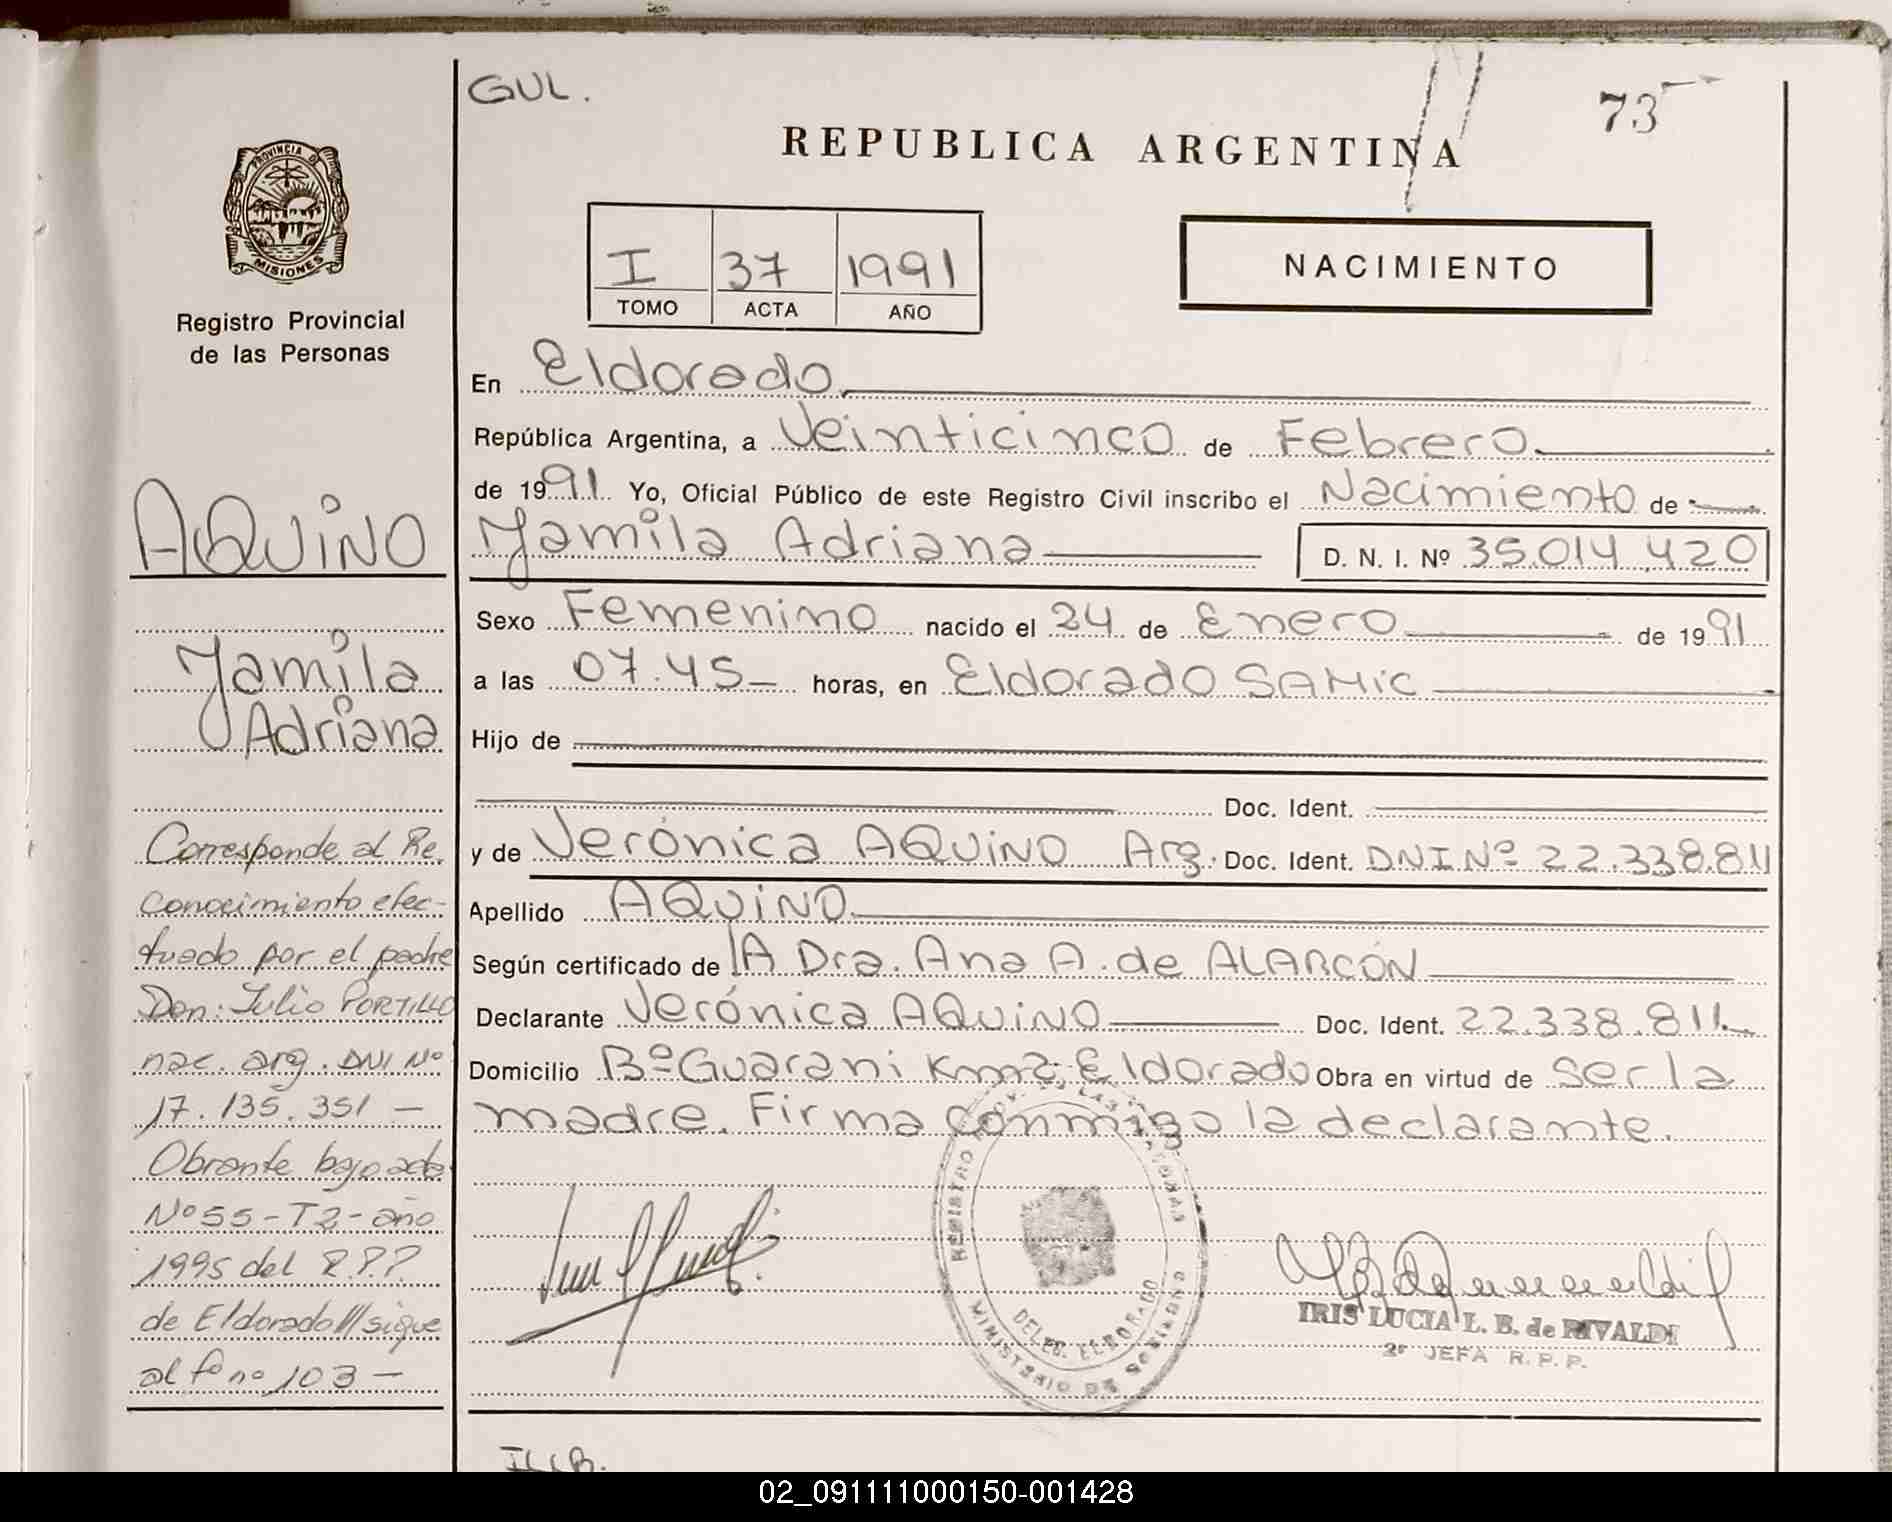 GUL.
73
REPUBLICA ARGENTINA
PROVINCIA DE
MISIONES
Registro Provincial
de las Personas
I 37 1991
TOMO ACTA AÑO
NACIMIENTO
En Eldorado
República Argentina, a Veinticinco de Febrero
de 1991. Yo, Oficial Público de este Registro Civil inscribo el Nacimiento de
Yamila Adriana D. N. I. Nº 35.014.420
Sexo Femenino nacido el 24 de Enero de 1991
a las 07.45 horas, en Eldorado SAMIC
Hijo de
Doc. Ident.
y de Verónica AQUINO Arg. Doc. Ident. DNI Nº 22.338.811
Apellido AQUINO
Según certificado de lA Dra. Ana A. de ALARCÓN
Declarante Verónica AQUINO Doc. Ident. 22.338.811
Domicilio Bº Guarani Km 2, Eldorado Obra en virtud de ser la
madre. Firma conmigo la declarante.
AQUINO
Yamila
Adriana
Corresponde al Re.
conocimiento efec-
tuado por el padre
Don: Julio PORTILLO
nac. arg. DNI Nº
17.135.351 —
Obrante bajo acta
Nº 55 - T 2 - año
1995 del R.P.P.
de Eldorado///sigue
al fº nº 103 —
REGISTRO PROV. DE LAS PERSONAS
DELEG. ELDORADO
MINISTERIO DE GOBIERNO
IRIS LUCIA L. B. de RIVALDI
2º JEFA R. P. P.
02_091111000150-001428